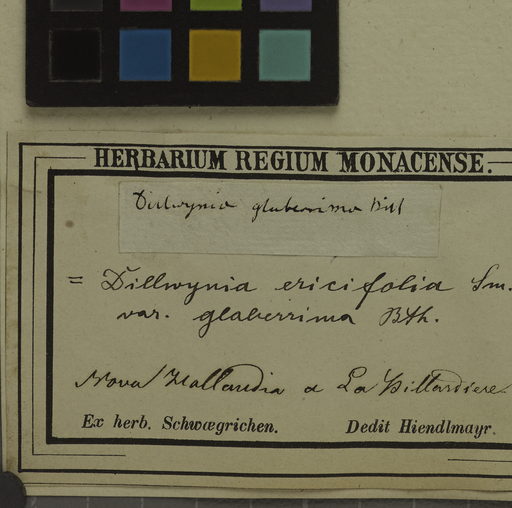 HERBARIUM REGIUM MONACENSE.
Dillwynia glaberrima Bill
= Dillwynia ericifolia Sm.
var. glaberrima Bth.
Nova Hollandia a La Billardiere.
Ex herb. Schwægrichen. Dedit Hiendlmayr.